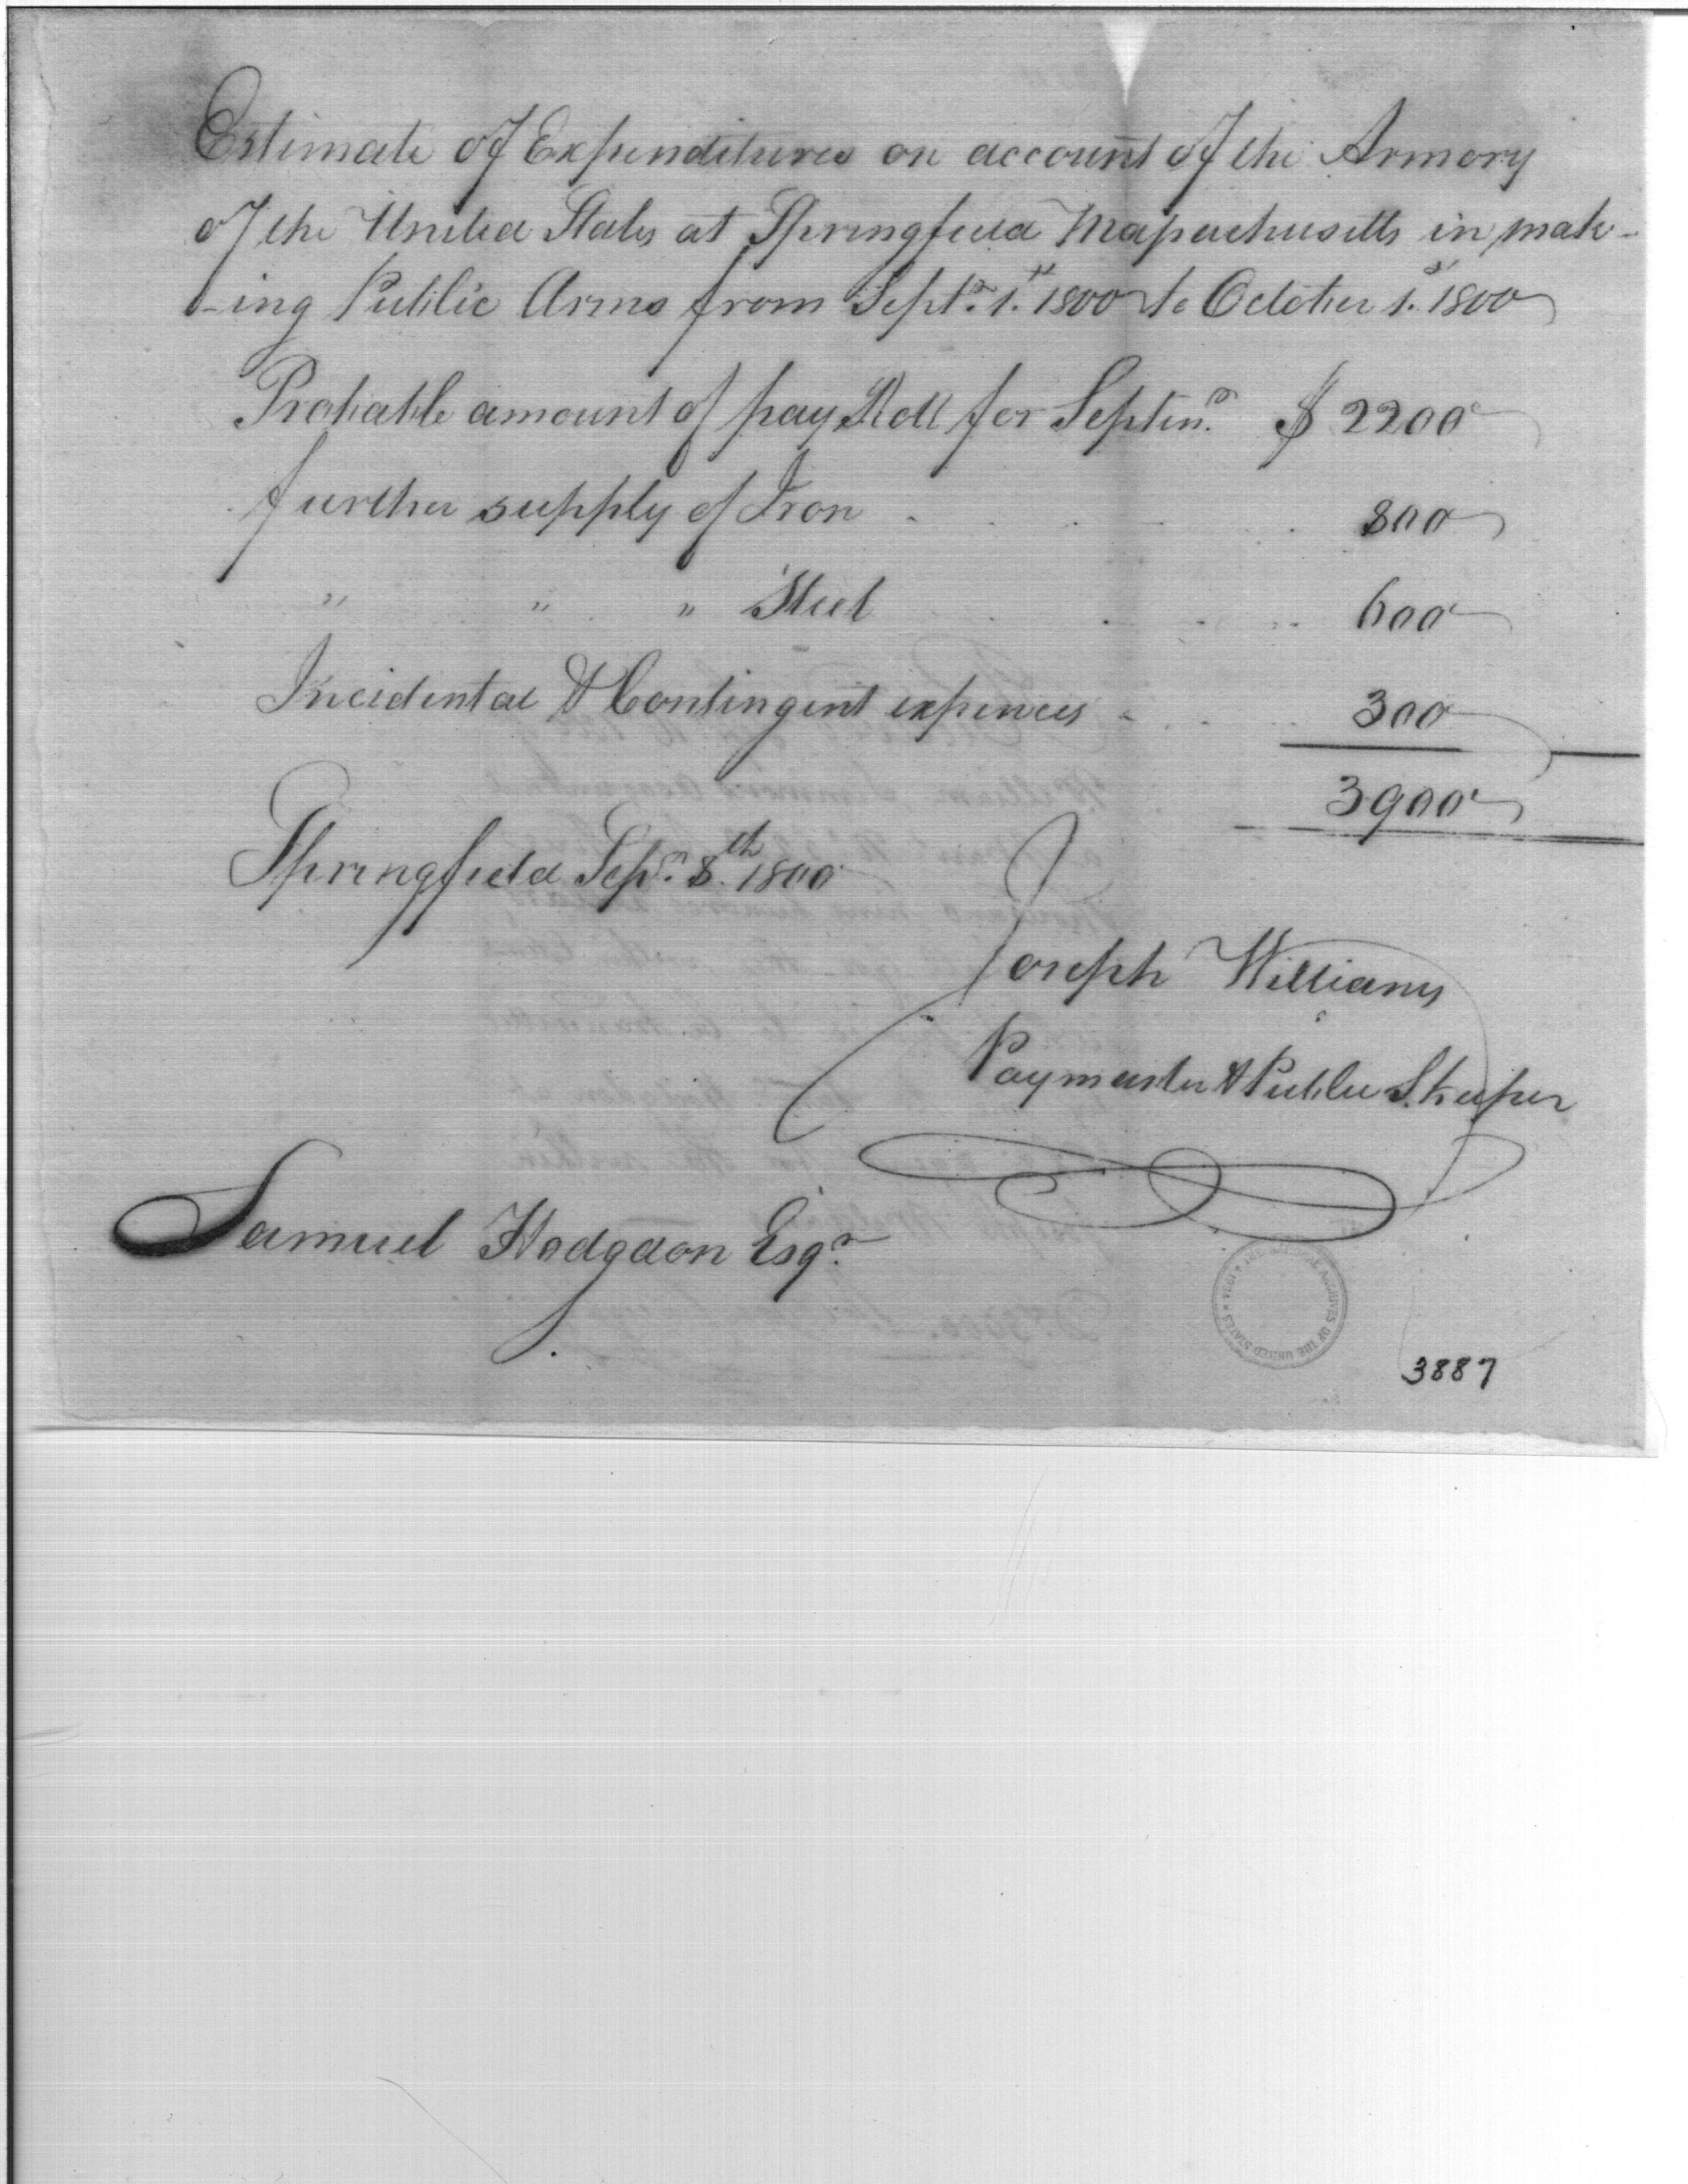 Estimate of Expenditures on account of the Armory
of the United States at Springfield Massachusetts in mak-
-ing Public Arms from Septr. 1st. 1800 to October 1st. 1800
Probable amount of pay Roll for Septemr. $ 2200
further supply of Iron 800
" " " Steel 600
Incidental & Contingent expences 300
3900
Springfield Sepr. 8th. 1800
Joseph Williams
Paymaster & Public S.keeper
Samuel Hodgdon Esqr.
THE NATIONAL ARCHIVES OF THE UNITED STATES * 1934 *
3887